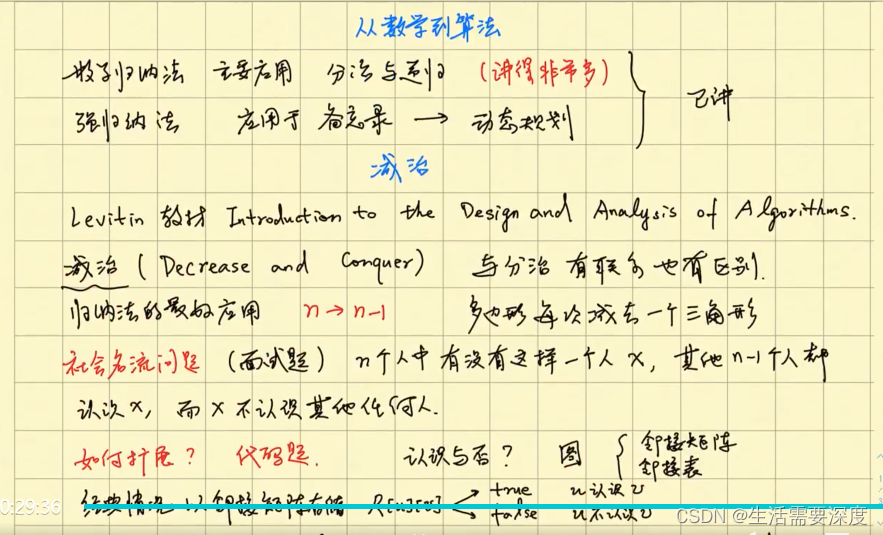 从数学到算法
般子归纳法 主要应用 分治与递归 (讲得非常多)
强归纳法 应用于 备忘录 → 动态规划
已讲
减治
Levitin 教材 Introduction to the Design and Analysis of Algorithms.
减治 (Decrease and Conquer) 与分治 有联系也有区别.
归纳法的最初应用 n → n-1 多边形每次减去一个三角形
社会名流问题 (面试题) n个人中有没有这样一个人 x, 其他 n-1 个人都
认识 x, 而 x 不认识其他任何人.
如何扩展? 代码题. 认识与否? 图 { 邻接矩阵
邻接表
true u认识v
经典情况 以邻接矩阵存储 R[u][v]
false u不认识v
0:29:36
CSDN @生活需要深度